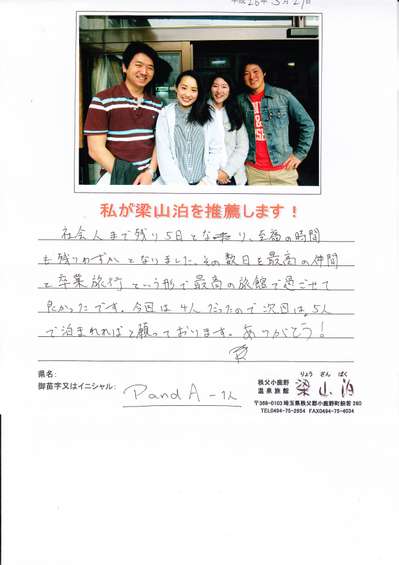 平成26年3月27日
私が梁山泊を推薦します！
社会人まで残り5日となり、至福の時間
も残りわずかとなりました。その数日を最高の仲間
と卒業旅行という形で最高の旅館で過ごせて
良かったです。今回は4人だったので次回は5人
で泊まれればと願っております。ありがとう！
県名:
御苗字又はイニシャル: PandA-1人
秩父小鹿野
温泉旅館
りょう ざん ぱく
梁山泊
〒368-0103埼玉県秩父郡小鹿野町般若260
TEL0494-75-2654 FAX0494-75-4034